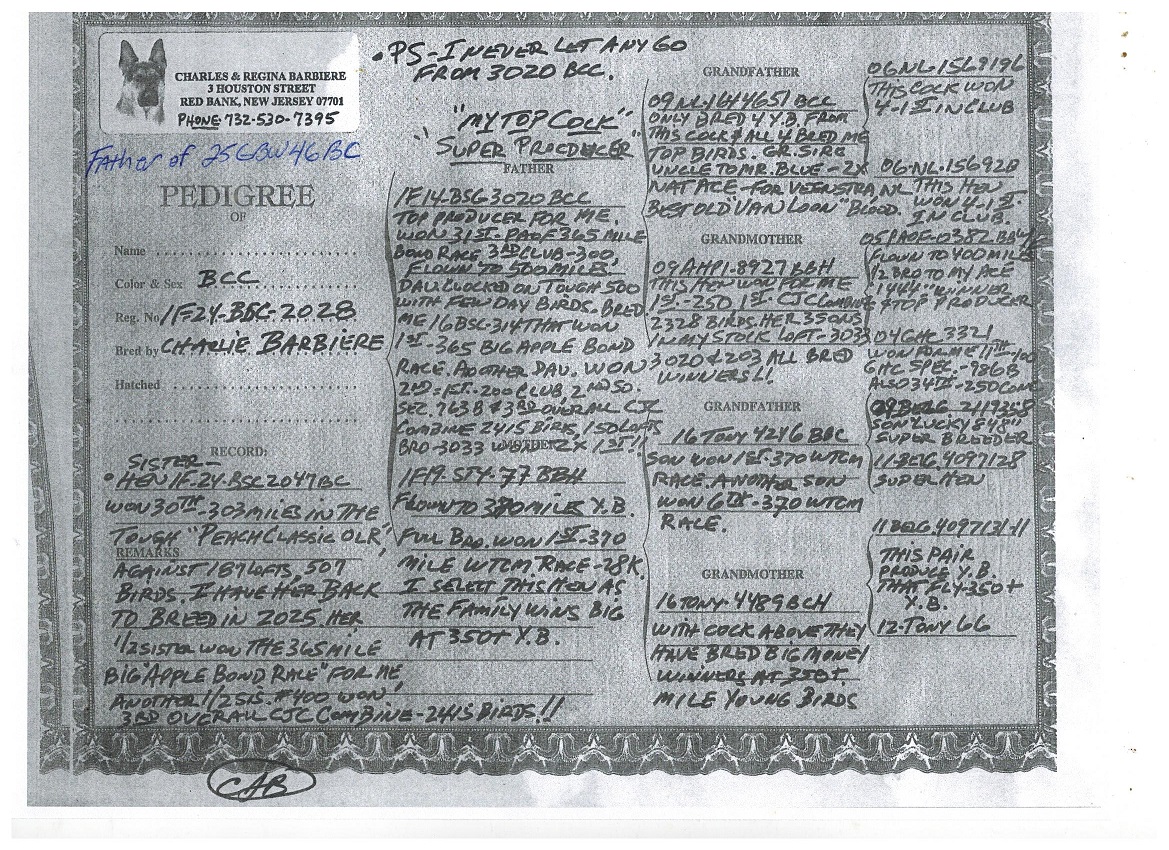 CHARLES & REGINA BARBIERE
3 HOUSTON STREET
RED BANK, NEW JERSEY 07701
PHONE: 732-530-7395
Father of 25GBW46BC
PEDIGREE
OF
Name
Color & Sex BCC
Reg. No IF24-BSC-2028
Bred by CHARLIE BARBIERE
Hatched
RECORD:
SISTER-
HEN IF-24-BSC2047BC
WON 30TH-303 MILES IN THE
TOUGH "PEACH CLASSIC OLR",
REMARKS
AGAINST 187 LOFTS, 507
BIRDS. I HAVE HER BACK
TO BREED IN 2025. HER
1/2 SISTER WON THE 365 MILE
BIG "APPLE BOND RACE" FOR ME
ANOTHER 1/2 SIS. #400 WON,
3RD OVERALL CJC COMBINE-2415 BIRDS.!!
CAB
• PS-I NEVER LET ANY GO
FROM 3020 BCC.
"MY TOP COCK"
"SUPER PRODUCER"
FATHER
IF14-BSC-3020 BCC
TOP PRODUCER FOR ME.
WON 31ST. PAOF 365 MILE
BOND RACE, 3RD CLUB-300,
FLOWN TO 500 MILES,
DAY CLOCKED ON TOUGH 500
WITH FEW DAY BIRDS. BRED
ME 16 BSC-314 THAT WON
1ST-365 BIG APPLE BOND
RACE. ANOTHER DAU. WON
2ND-FT-200 CLUB, 2ND SO.
SEC. 763B & 3RD OVERALL CJC
COMBINE 2415 BIRDS, 150 LOFTS
BRO-3033 WON 2X 1ST!!
MOTHER
IF19-STY-77 BBH
FLOWN TO 370 MILES Y.B.
FULL BRO. WON 1ST-370
MILE WTCM RACE-28K.
I SELECT THIS HEN AS
THE FAMILY WINS BIG
AT 350+ Y.B.
GRANDFATHER
09NL1644651 BCC
ONLY BRED 4 Y.B. FROM
THIS COCK & ALL 4 BRED ME
TOP BIRDS. GR. SIRE
UNCLE TO MR. BLUE-2X
NAT ACE-FOR VEENSTRA, NL
BEST OLD "VAN LOON" BLOOD.
GRANDMOTHER
09AHPI-8927 BBH
THIS HEN WON FOR ME
1ST-250 1ST. CJC COMBINE
2328 BIRDS. HER 3 SONS
IN MY STOCK LOFT-3033
3020 & 203 ALL BRED
WINNERS!!
GRANDFATHER
16 TONY 4246 BBC
SON WON 1ST-370 WTCM
RACE. ANOTHER SON
WON 6TH-370 WTCM
RACE.
GRANDMOTHER
16 TONY-4489 BCH
WITH COCK ABOVE THEY
HAVE BRED BIG MONEY
WINNERS AT 350+
MILE YOUNG BIRDS
06-NL-1569196
THIS COCK WON
4-1ST IN CLUB
06-NL-156928
THIS HEN
WON 4-1ST
IN CLUB.
05 PAOF-0382
FLOWN TO 400 MILES
1/2 BRO TO MY ACE
"1444" WINNER
& TOP PRODUCER
04 GHC 3321
WON FOR ME 11TH-400
GHC SPEC.-986B
ALSO 34TH-250 COMB
09 BELG 2119258
SON "LUCKY 848"
SUPER BREEDER
11-BELG 4097128
SUPER HEN
11 BELG. 4097131-11
THIS PAIR
PRODUCE Y.B.
THAT FLY 350+
Y.B.
12-TONY 66